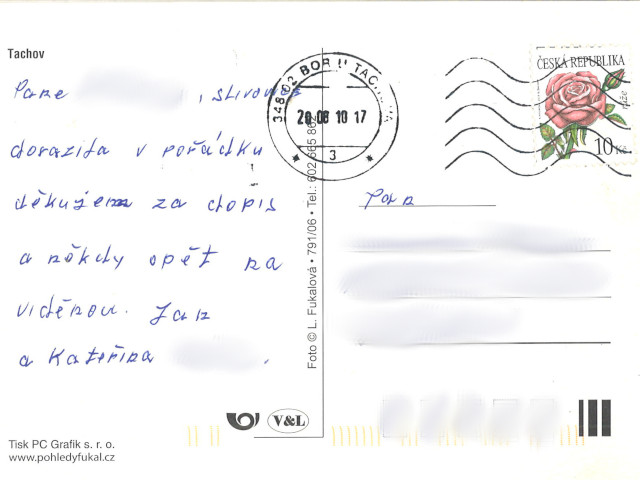 Tachov
Pane , slivovice
dorazila v pořádku
děkujem za dopis
a někdy opět na
viděnou. Jan
a Kateřina .
Tisk PC Grafik s. r. o.
www.pohledyfukal.cz
V&L
Foto © L. Fukalová • 791/06 • Tel.: 602 665 86
348 02 BOR U TACHOVA
20 08 10 17
3
ČESKÁ REPUBLIKA
růže
10 Kč
Pan